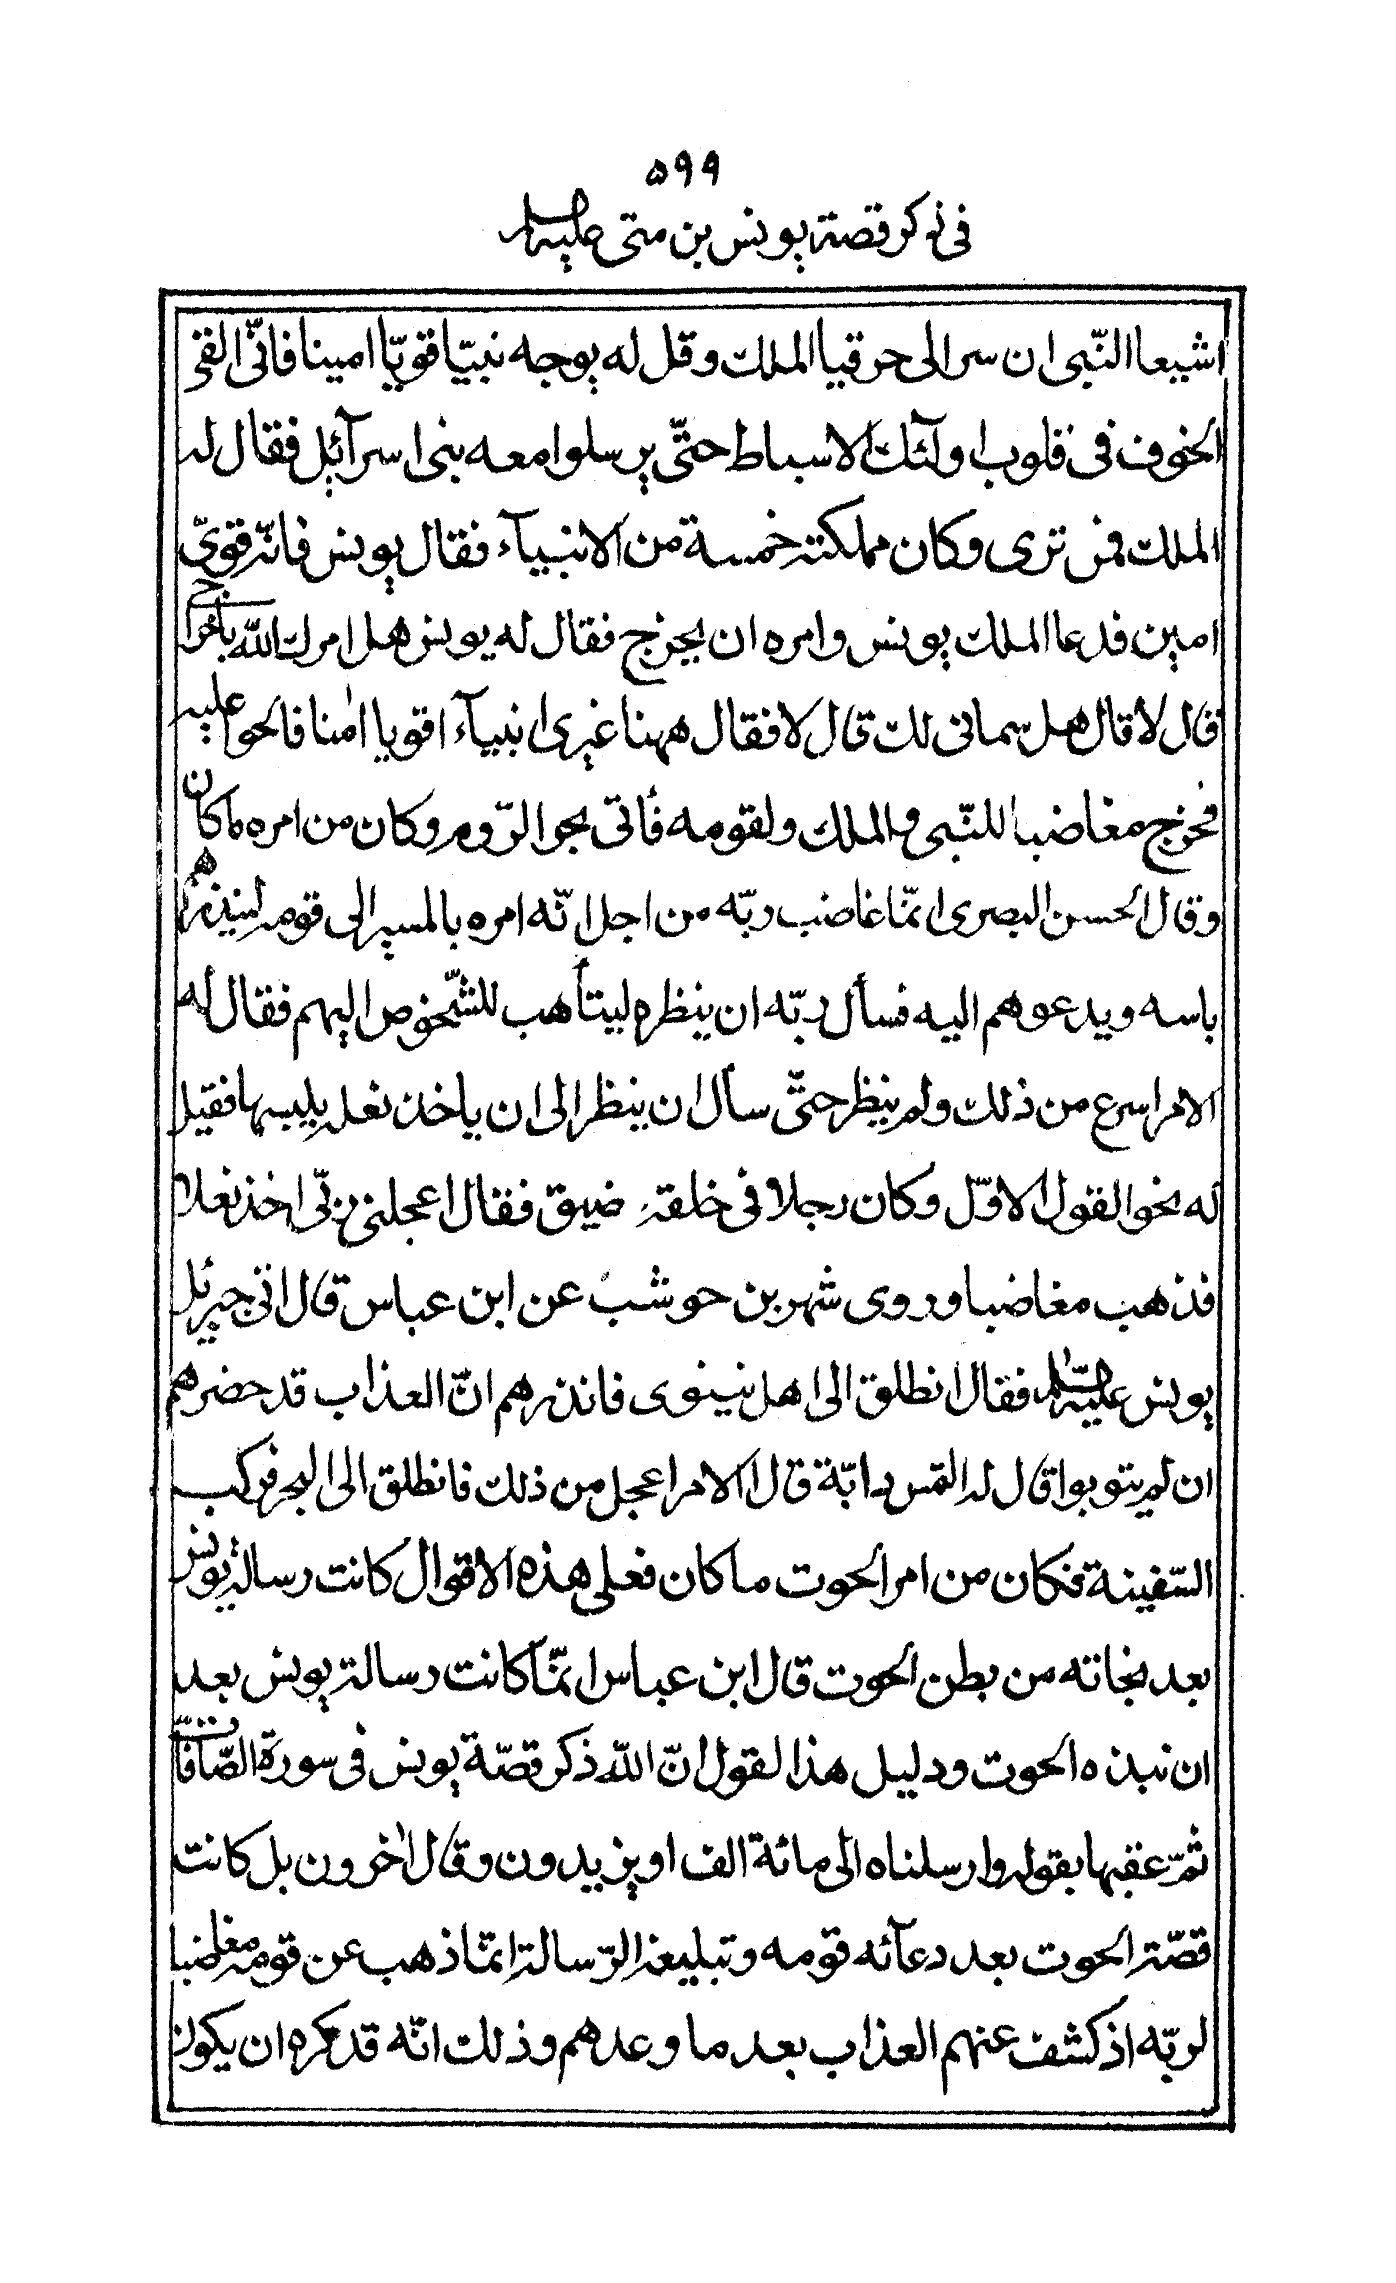 ۵۹۹
فی ذکر قصة یونس بن متی علیه السلام
اشیعا النّبی ان سر الی حرقیا الملك وقل له یوجه نبیّا قویّا امینا فانّی القی
الخوف فی قلوب اولٓئك الاسباط حتّی یرسلوا معه بنی اسرآئیل فقال له
الملك فمن تری وکان مملکته خمسة من الانبیآء فقال یونس فانه قویّ
امین فدعا الملك یونس وامره ان یخرج فقال له یونس هل امرك الله باخراجی
قال لا قال هل سمانی لك قال لا فقال ههنا غیری انبیآء اقویا اٰمنا فالحوا علیه
فخرج مغاضبا للنّبی والملك ولقومه فأتی بحر الرّوم وکان من امره ما کان
وقال الحسن البصری انّما غاضب ربّه من اجل انّه امره بالمسیر الی قومه لینذرهم
باسه ویدعوهم الیه فسأل ربّه ان ینظره لیتأهب للشّخوص الیهم فقال له
الامر اسرع من ذلك ولم ینظر حتّی سأل ان ینظر الی ان یاخذ نعله یلبسها فقیل
له نحو القول الاوّل وکان رجلا فی خلقه ضیق فقال اعجلنی ربّی اخذ نعلا
فذهب مغاضبا وروی شهر بن حوشب عن ابن عباس قال اتی جبرئیل
یونس علیه السّلام فقال انطلق الی اهل نینوی فانذرهم انّ العذاب قد حضرهم
ان لم یتوبوا قال له التمس دابّة قال الامر اعجل من ذلك فانطلق الی البحر فرکب
السّفینة فکان من امر الحوت ما کان فعلی هذه الاقوال کانت رسالة یونس
بعد نجاته من بطن الحوت قال ابن عباس انّما کانت رسالة یونس بعد
ان نبذه الحوت ودلیل هذا القول انّ الله ذکر قصّة یونس فی سورة الصّآفّات
ثمّ عقبها بقوله وارسلناه الی مائة الف او یزیدون وقال اٰخرون بل کانت
قصّة الحوت بعد دعآئه قومه وتبلیغه الرّسالة انّما ذهب عن قومه مغاضبا
لربّه اذ کشف عنهم العذاب بعد ما وعدهم وذلك انّه قد کره ان یکون